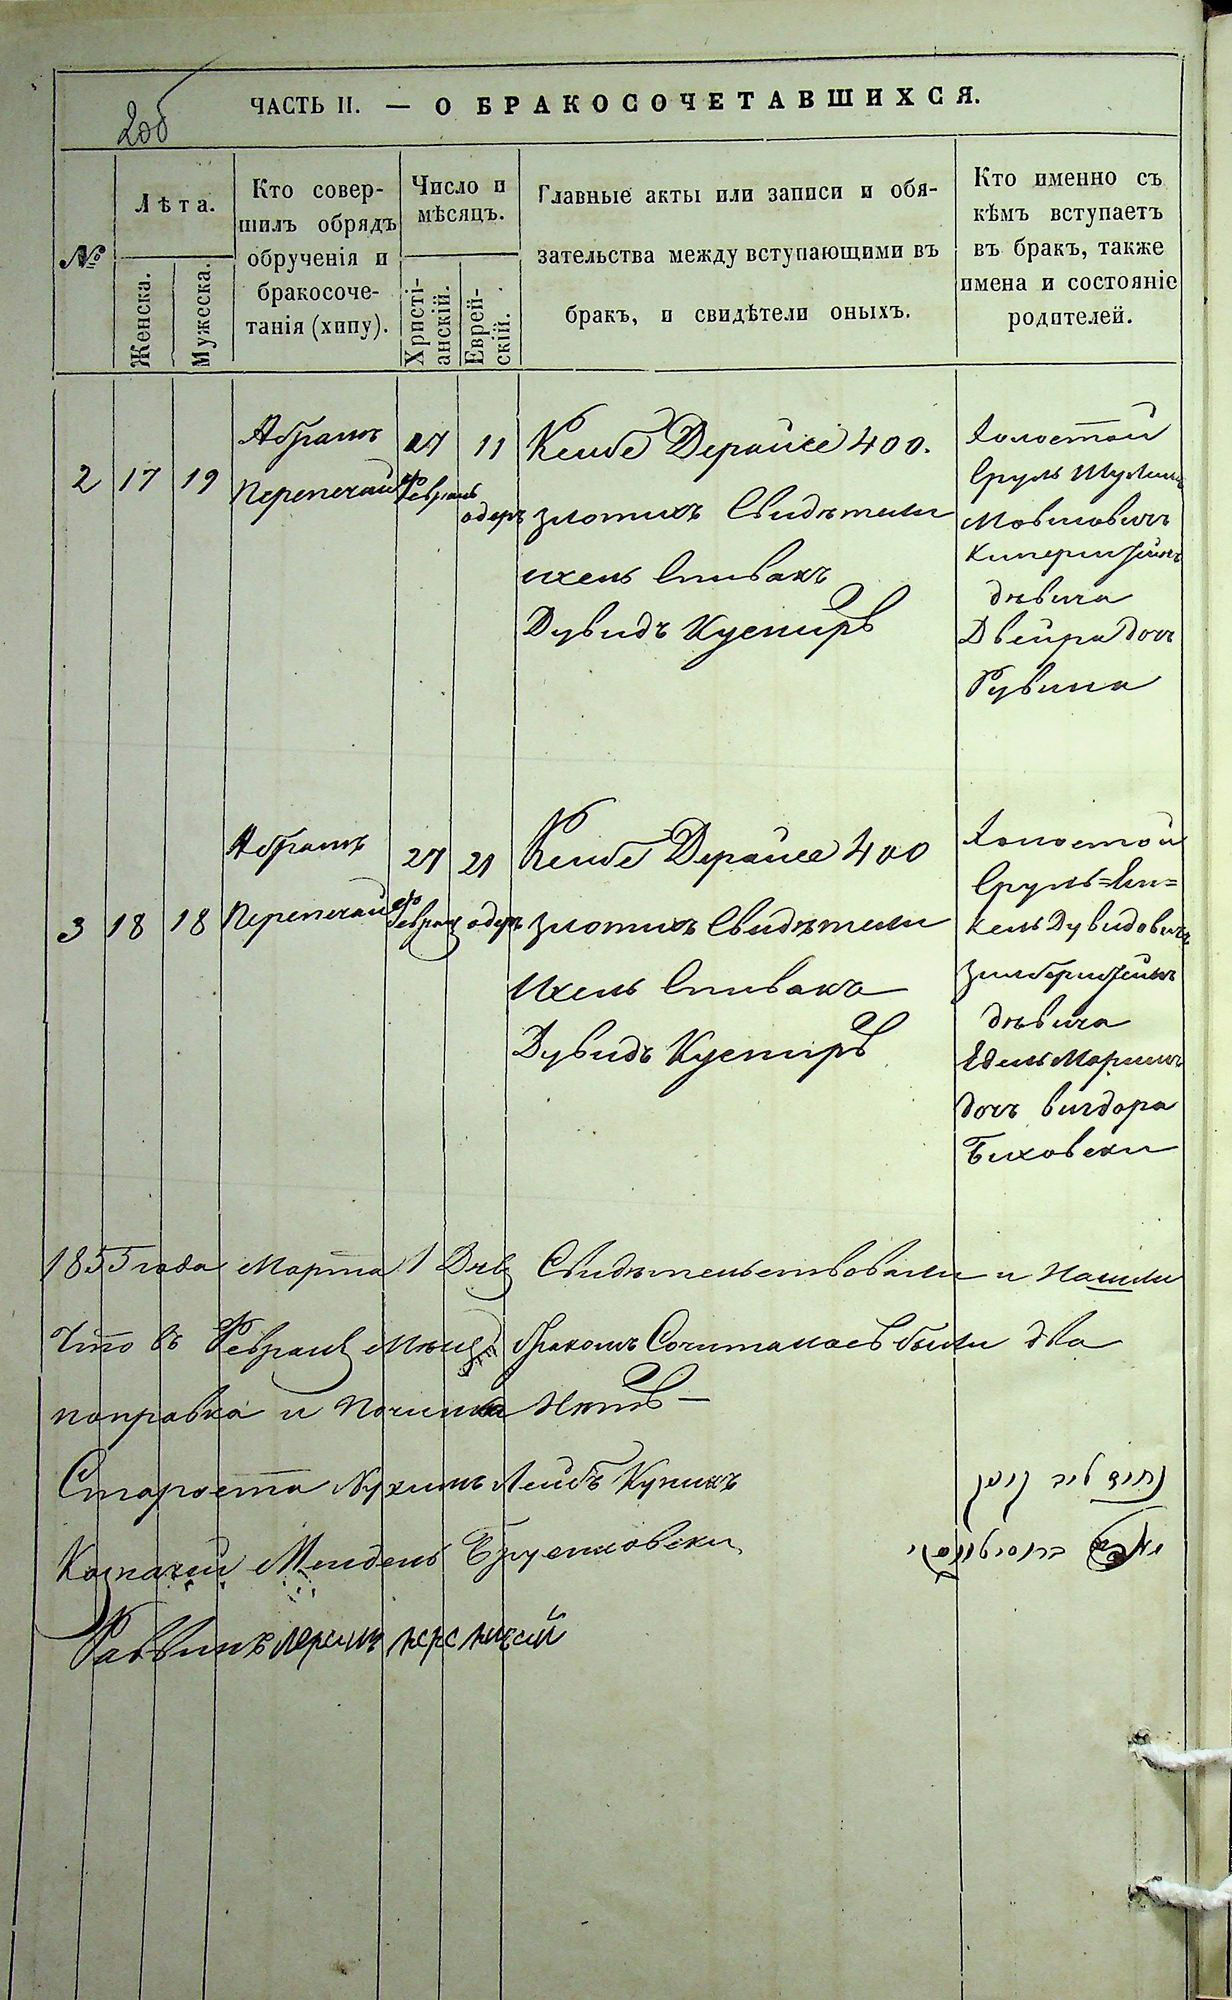 2об
ЧАСТЬ II. — О БРАКОСОЧЕТАВШИХСЯ.
№
Лѣта.
Женска.
Мужеска.
Кто совер-
шилъ обрядъ
обрученія и
бракосоче-
танія (хипу).
Число и
мѣсяцъ.
Христі-
анскій.
Еврей-
скій.
Главные акты или записи и обя-
зательства между вступающими въ
бракъ, и свидѣтели оныхъ.
Кто именно съ
кѣмъ вступаетъ
въ бракъ, также
имена и состояніе
родителей.
2 17 19
Абрамъ
Перепечай
27
Февраль
11
адеръ
Кеибе Дерайсе 400.
злотихъ Свидѣтели
Ихель Спивакъ
Дувидъ Кусниръ
Холостой
Сруль
Мовшовичъ
дѣвица
Двейра дочь
Рувина
3 18 18
Абрамъ
Перепечай
27
Февраля
21
адеръ
Кеибе Дерайсе 400
злотихъ Свидѣтели
Ихель Спивакъ
Дувидъ Кусниръ
Холостой
Сруль=Ян=
кель Дувидовичъ
Зильберштейнъ
дѣвица
Едель Маримъ
дочь Вигдора
Биховски
1855 года Марта 1 Дня Свидѣтельствовали и Нашли
Что въ Февралѣ бракомъ Сочиталась были два
поправка и Починка Нѣтъ —
Староста Нухимъ Лейбъ Купикъ
Казначей Мендель Бруслиовски
Раввинъ перепичай